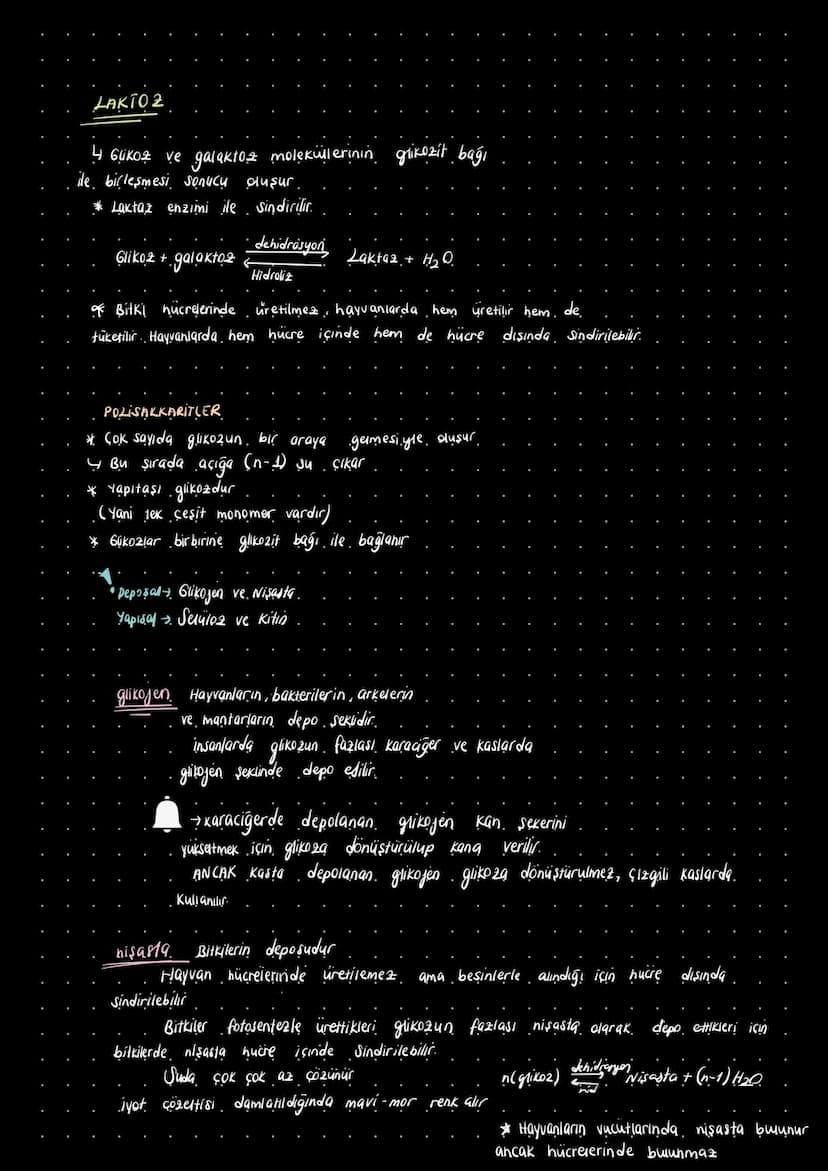 LAKTOZ
↳ Glikoz ve galaktoz moleküllerinin glikozit bağı
ile birleşmesi sonucu oluşur
* Laktaz enzimi ile sindirilir.
dehidrasyon
Glikoz + galaktoz ⇌ Laktaz + H₂O
Hidroliz
* Bitki hücrelerinde üretilmez, hayvanlarda hem üretilir hem de
tüketilir. Hayvanlarda hem hücre içinde hem de hücre dışında sindirilebilir.
POLİSAKKARİTLER
* Çok sayıda glikozun bir araya gelmesiyle oluşur.
↳ Bu sırada açığa (n-1) su çıkar
* Yapıtaşı glikozdur
(Yani tek çeşit monomer vardır)
* Glikozlar birbirine glikozit bağı ile bağlanır
• Deposal → Glikojen ve Nişasta.
Yapısal → Selüloz ve Kitin
glikojen Hayvanların, bakterilerin, arkelerin
ve mantarların depo şeklidir.
insanlarda glikozun fazlası karaciğer ve kaslarda
glikojen şeklinde depo edilir.
→ karaciğerde depolanan glikojen kan şekerini
yükseltmek için glikoza dönüştürülüp kana verilir.
ANCAK kasta depolanan glikojen glikoza dönüştürülmez, çizgili kaslarda
kullanılır.
nişasta Bitkilerin deposudur
Hayvan hücrelerinde üretilemez ama besinlerle alındığı için hücre dışında
sindirilebilir
Bitkiler fotosentezle ürettikleri glikozun fazlası nişasta olarak depo ettikleri için
bitkilerde nişasta hücre içinde sindirilebilir.
Suda çok çok az çözünür
dehidrasyon
n(glikoz) ⇌ Nişasta + (n-1) H₂O
iyot çözeltisi damlatıldığında mavi-mor renk alır
* Hayvanların vücutlarında nişasta bulunur
ancak hücrelerinde bulunmaz